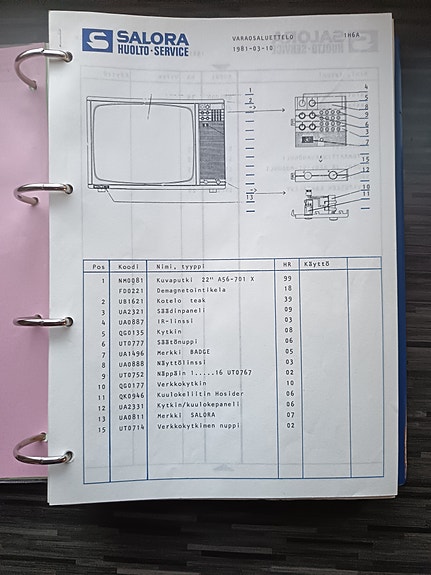 SALORA
HUOLTO-SERVICE
VARAOSALUETTELO
1981-03-10
1H6A
1
2
13
4
5
8
9
6
3
7
15
12
10
11
Pos Koodi Nimi, tyyppi HR Käyttö
1 NM0081 Kuvaputki 22" A56-701 X 99
FD0221 Demagnetointikela 18
2 UB1621 Kotelo teak 39
3 UA2321 Säädinpaneli 09
4 UA0887 IR-linssi 03
5 QG0135 Kytkin 08
6 UT0777 Säätönuppi 06
7 UA1496 Merkki BADGE 05
8 UA0888 Näyttölinssi 03
9 UT0752 Näppäin 1.....16 UT0767 02
10 QG0177 Verkkokytkin 10
11 QK0946 Kuulokeliitin Hosiden 06
12 UA2331 Kytkin/kuulokepaneli 06
13 UA0811 Merkki SALORA 07
15 UT0714 Verkkokytkimen nuppi 02